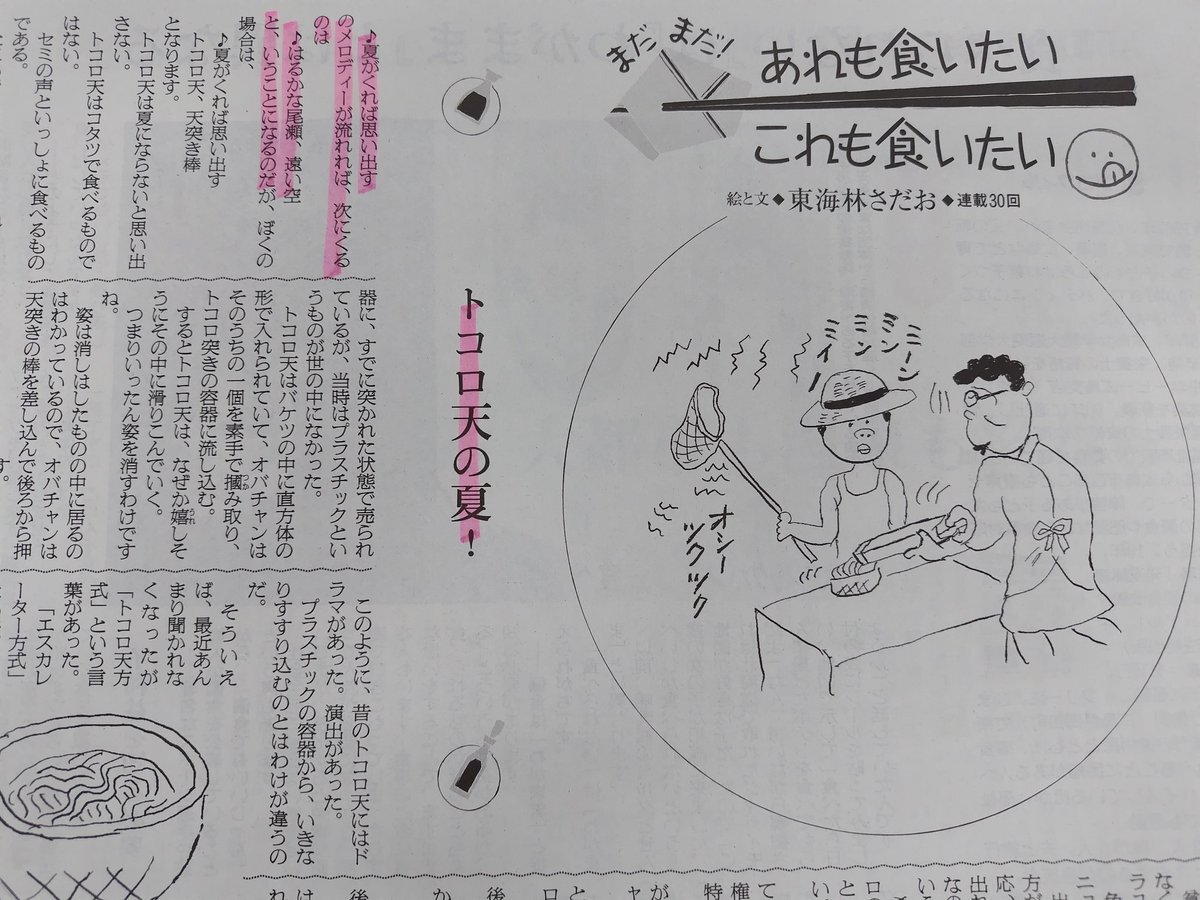 まだまだ!
あれも食いたい
これも食いたい
絵と文◆東海林さだお◆連載30回
ミーン
ミン
ミン
ミィー
オシー
ツクツク
トコロ天の夏!
♪夏がくれば思い出す
のメロディーが流れれば、次にくる
のは
♪はるかな尾瀬、遠い空
と、いうことになるのだが、ぼくの
場合は、
♪夏がくれば思い出す
トコロ天、天突き棒
となります。
トコロ天は夏にならないと思い出
さない。
トコロ天はコタツで食べるもので
はない。
セミの声といっしょに食べるもの
である。
器に、すでに突かれた状態で売られ
ているが、当時はプラスチックとい
うものが世の中になかった。
トコロ天はバケツの中に直方体の
形で入れられていて、オバチャンは
そのうちの一個を素手で摑み取り、
トコロ突きの容器に流し込む。
するとトコロ天は、なぜか嬉しそ
うにその中に滑りこんでいく。
つまりいったん姿を消すわけです
ね。
姿は消しはしたものの中に居るの
はわかっているので、オバチャンは
天突きの棒を差し込んで後ろから押
す。
このように、昔のトコロ天にはド
ラマがあった。演出があった。
プラスチックの容器から、いきな
りすすり込むのとはわけが違うの
だ。
そういえ
ば、最近あん
まり聞かれな
くなったが
「トコロ天方
式」という言
葉があった。
「エスカレ
ーター方式」